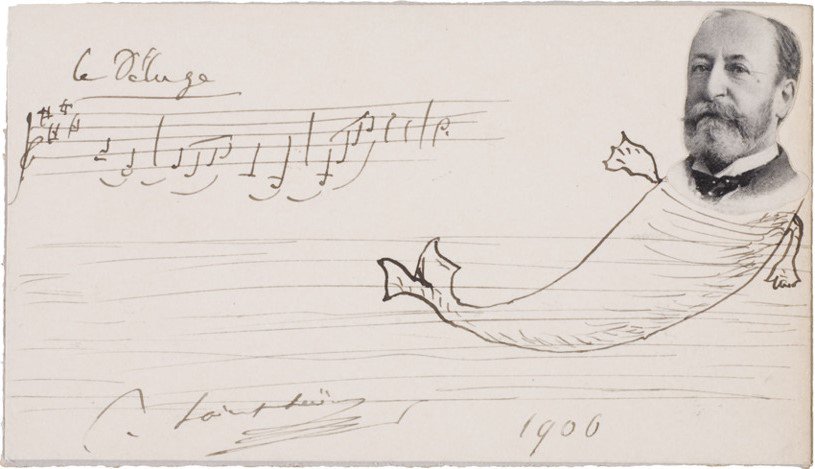 le Déluge
C. Saint-Saëns
1900